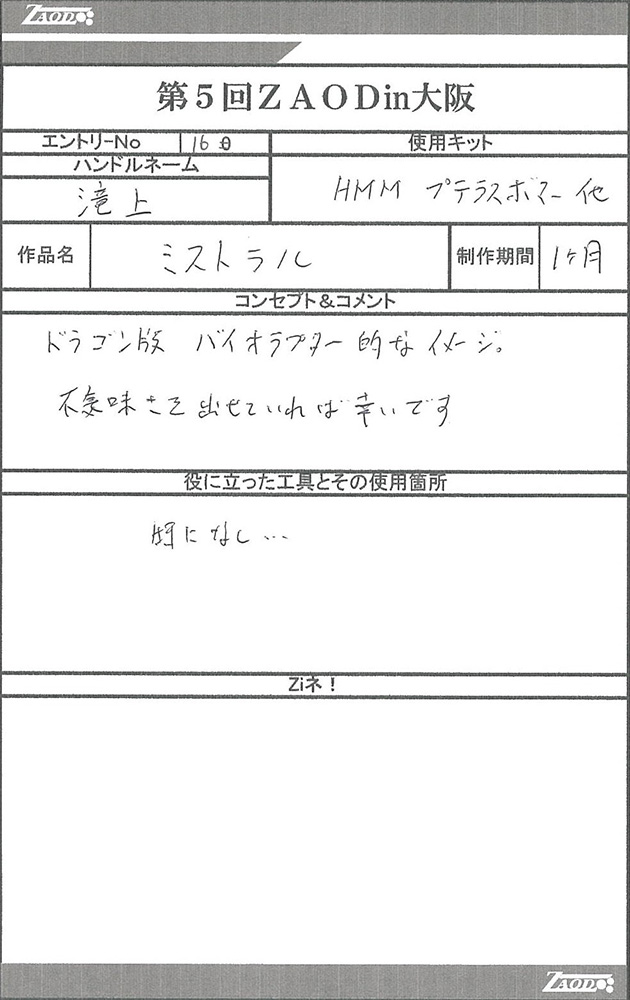 ZAOD
第5回ZAODin大阪
エントリ-No
使用キット
ハンドルネーム
滝上
HMM プテラスボマー 他
作品名
ミストラル
制作期間
1ヶ月
コンセプト&コメント
ドラゴン版 バイオラプター的なイメージ。
不気味さを出せていれば幸いです
役に立った工具とその使用箇所
特になし…
Ziネ!
ZAOD